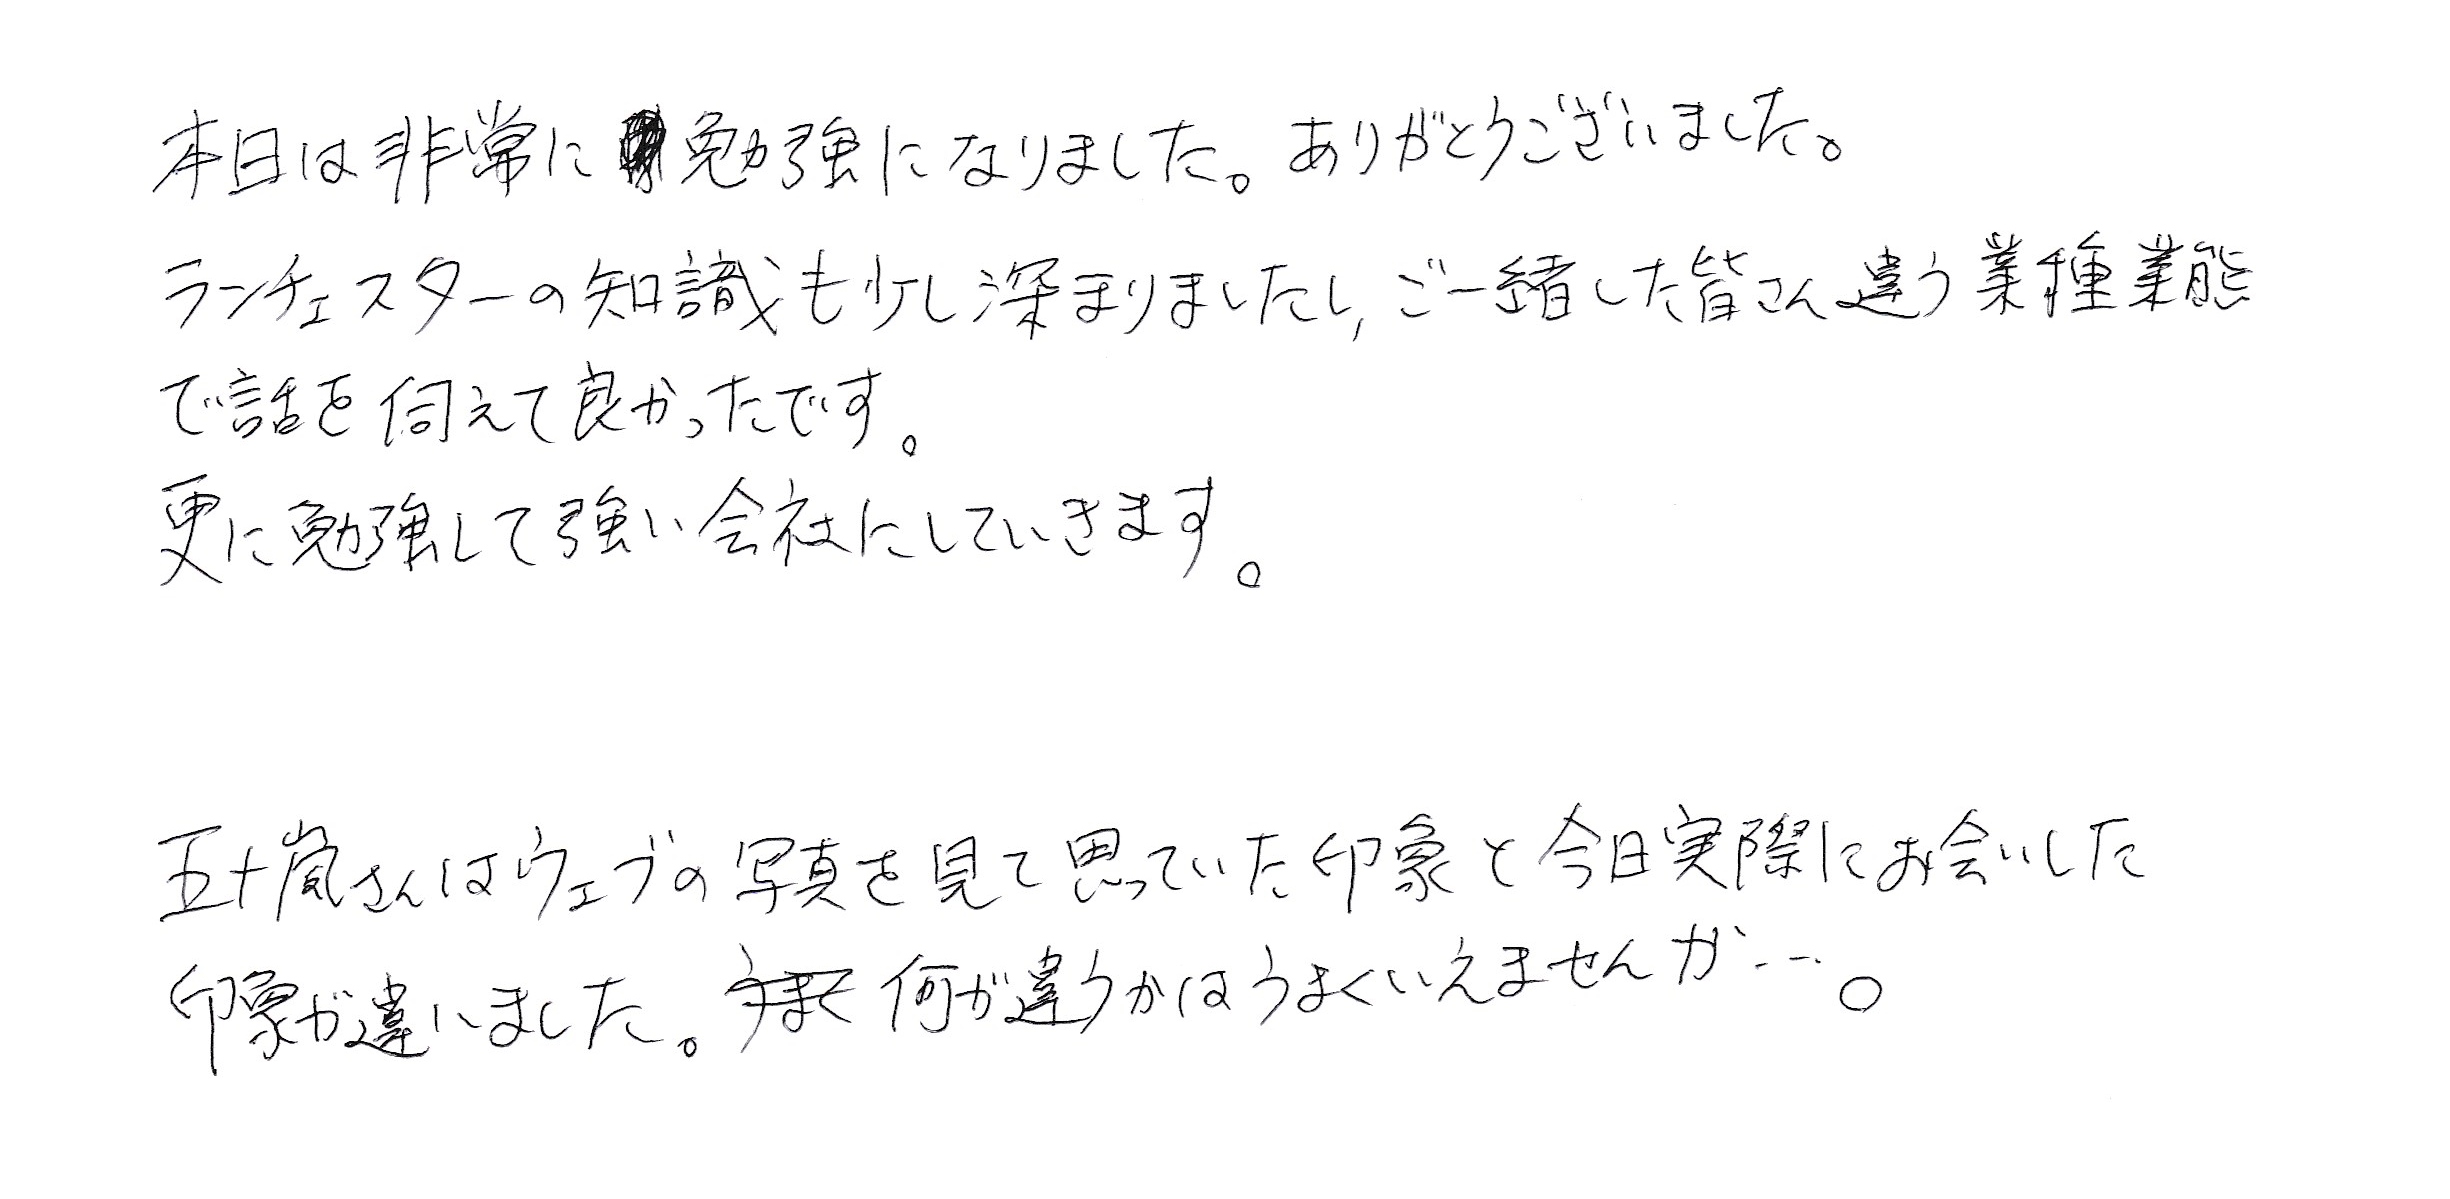 本日は非常に勉強になりました。ありがとうございました。
ランチェスターの知識も少し深まりましたし、ご一緒した皆さん違う業種業態
で話を伺えて良かったです。
更に勉強して強い会社にしていきます。
五十嵐さんはウェブの写真を見て思っていた印象と今日実際にお会いした
印象が違いました。うまく何が違うかはうまくいえませんが…。